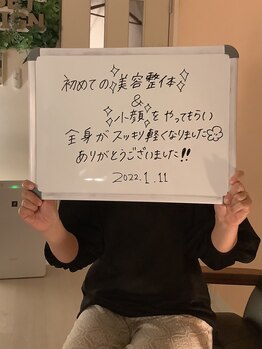 初めての美容整体
&
小顔をやってもらい
全身がスッキリ軽くなりました
ありがとうございました!!
2022.1.11